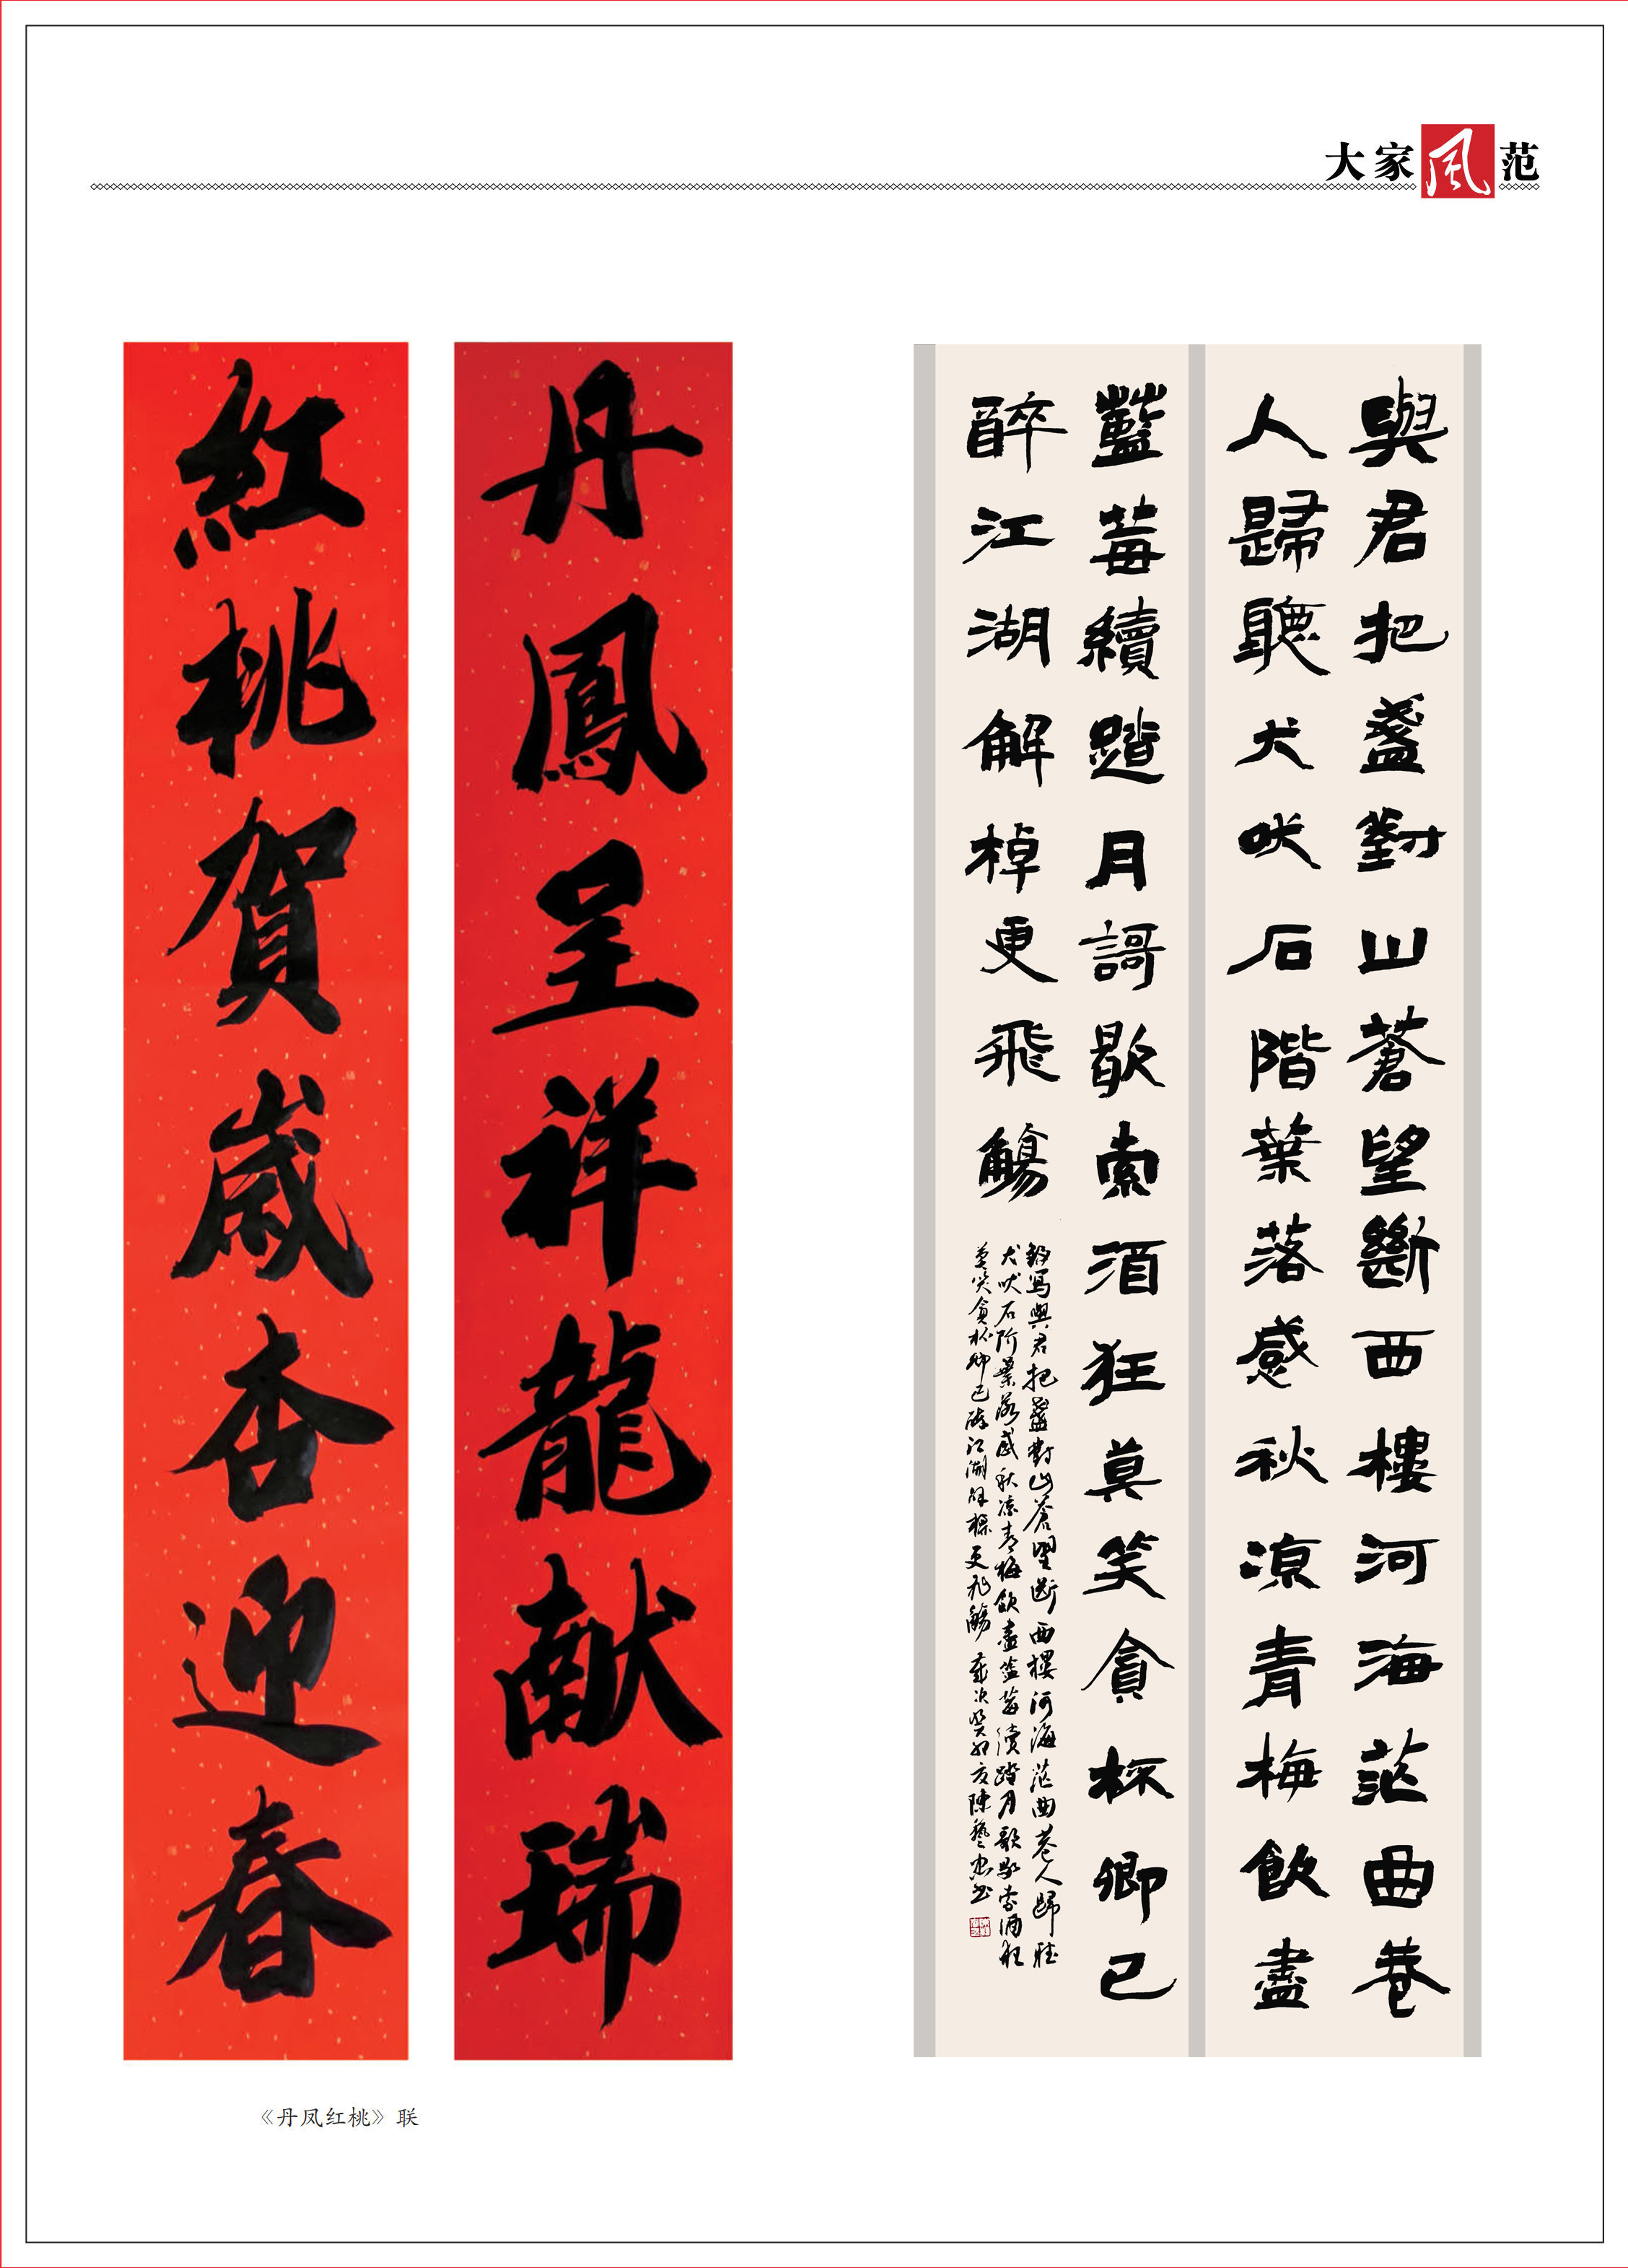 大家風范
與君把盞對山蒼望斷西樓河海茫曲巷
人歸聽犬吠石階葉落感秋涼青梅飲盡
藍莓續踏月謌歇索酒狂莫笑貪杯卿已
醉江湖解棹更飛觴
寫與君把盞對山蒼望斷西樓河海茫曲巷人歸聽
犬吠石阶葉落感秋涼青梅飲盡藍莓續踏月歌歇索酒狂
莫笑貪杯卿已醉江湖解棹更飛觴 歲次癸卯夏陳藝忠書
丹鳳呈祥龍献瑞
紅桃賀歲杏迎春
《丹凤红桃》联